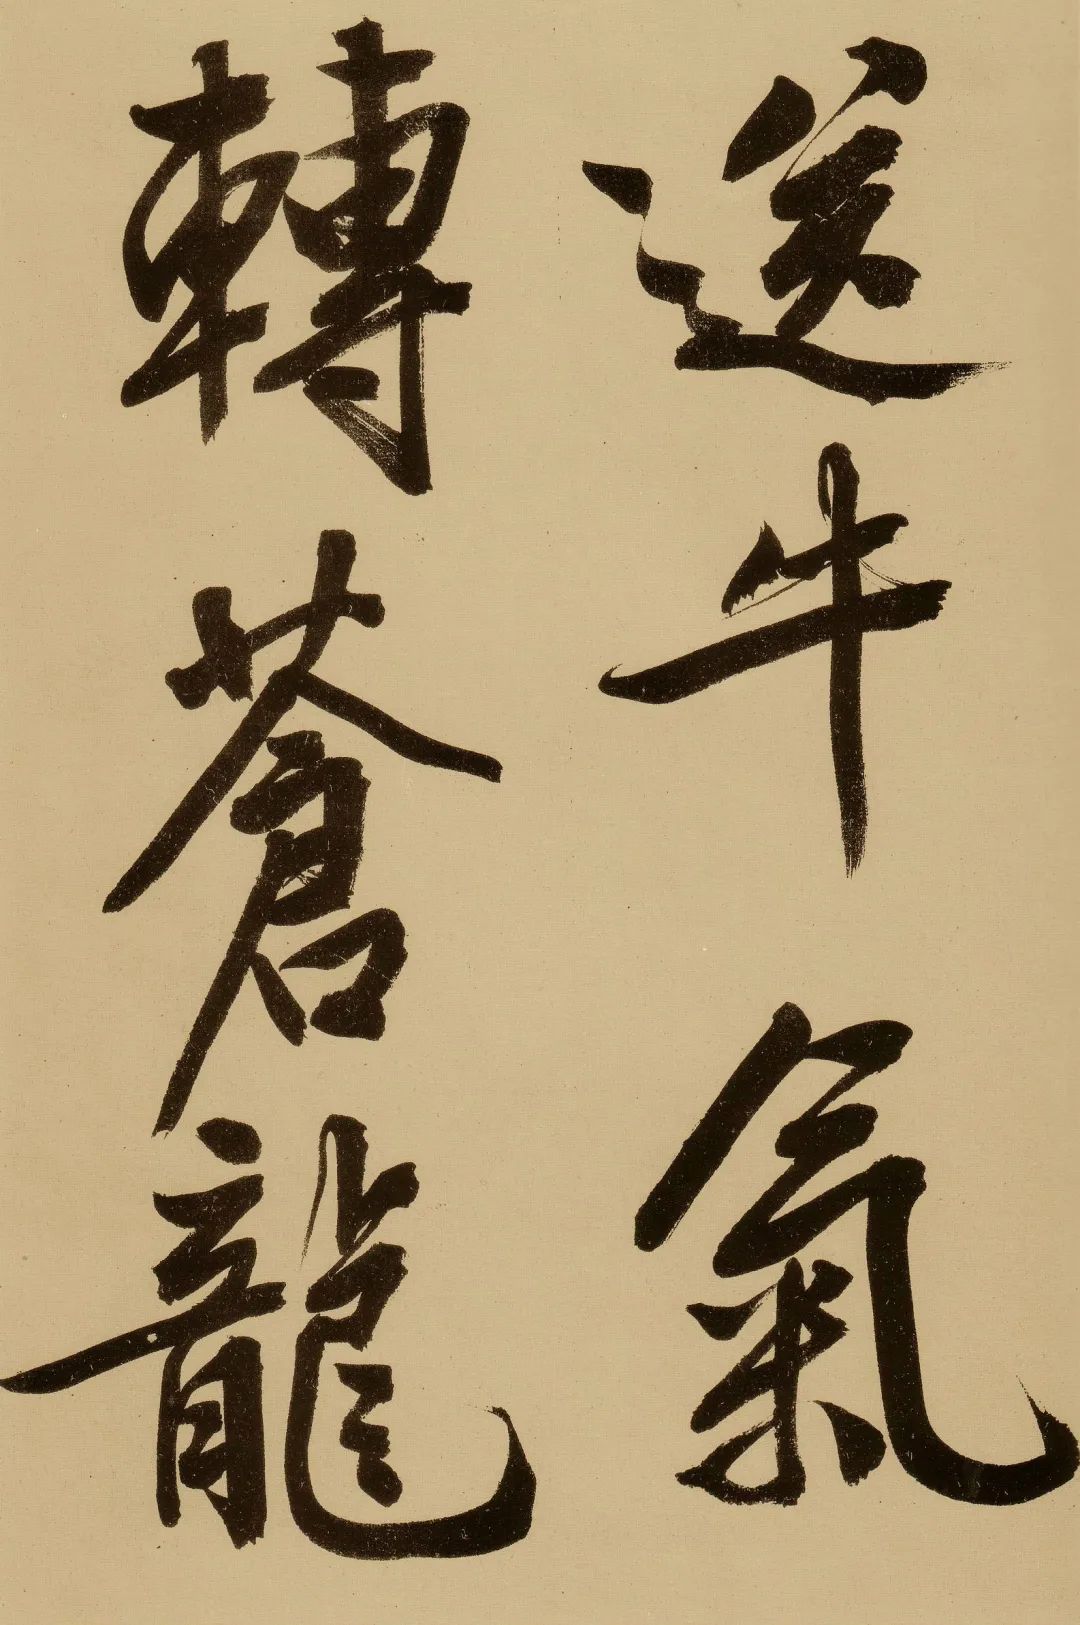 送牛氣
轉蒼龍